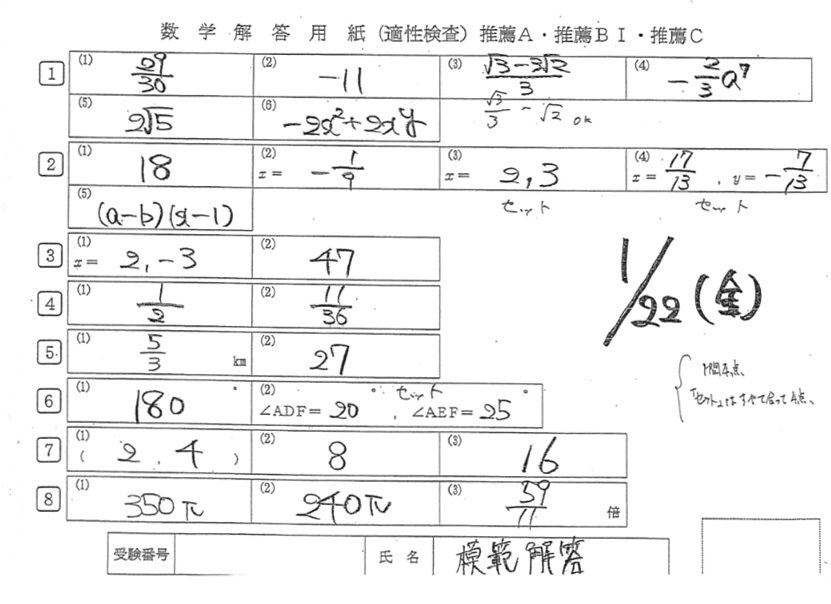 数学解答用紙(適性検査)推薦A・推薦BⅠ・推薦C
1 (1) 29/30 (2) -11 (3) (√3-3√2)/3 (4) -2/3 a⁷
√3/3 - √2 ok
(5) 2√5 (6) -2x²+2xy
2 (1) 18 (2) x= -1/9 (3) x= 2, 3 (4) x= 17/13 , y= -7/13
セット セット
(5) (a-b)(x-1)
3 (1) x= 2, -3 (2) 47
4 (1) 1/2 (2) 11/36
1/22 (金)
5 (1) 5/3 km (2) 27
1問4点、
「セット」はすべて合って4点、
セット
6 (1) 180° (2) ∠ADF= 20° , ∠AEF= 25°
7 (1) ( 2 , 4 ) (2) 8 (3) 16
8 (1) 350π (2) 240π (3) 59/11 倍
受験番号 氏名 模範解答